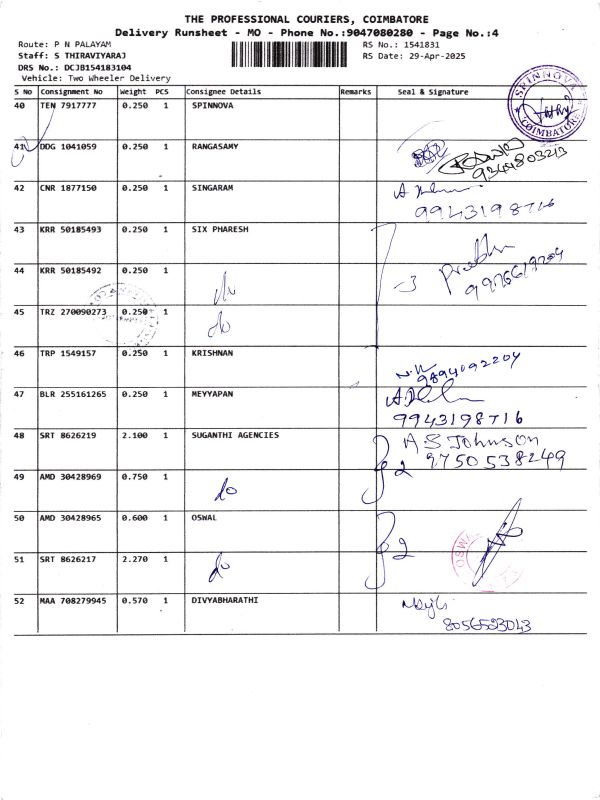 THE PROFESSIONAL COURIERS, COIMBATORE
Delivery Runsheet - MO - Phone No.:9047080280 - Page No.:4
Route: P N PALAYAM
RS No.: 1541831
Staff: S THIRAVIYARAJ
RS Date: 29-Apr-2025
DRS No.: DCJB154183104
Vehicle: Two Wheeler Delivery
S NO Consignment No Weight PCS Consignee Details Remarks Seal & Signature
40 TEN 7917777 0.250 1 SPINNOVA
SPINNOVA COIMBATORE
41 DDG 1041059 0.250 1 RANGASAMY
9344803213
42 CNR 1877150 0.250 1 SINGARAM
9943198716
43 KRR 50185493 0.250 1 SIX PHARESH
44 KRR 50185492 0.250 1 do
3
45 TRZ 270090273 0.250 1 do
46 TRP 1549157 0.250 1 KRISHNAN
9894092204
47 BLR 255161265 0.250 1 MEYYAPAN
9943198716
48 SRT 8626219 2.100 1 SUGANTHI AGENCIES
2 A S Johnson
9750538249
49 AMD 30428969 0.750 1 do
50 AMD 30428965 0.600 1 OSWAL
2
51 SRT 8626217 2.270 1 do
52 MAA 708279945 0.570 1 DIVYABHARATHI